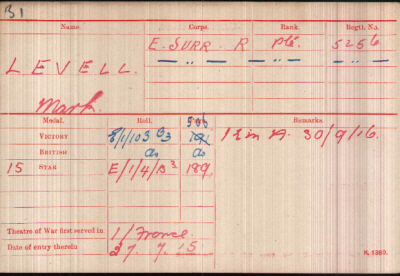 B1
Name. Corps. Rank. Regtl. No.
E. SURR. R Pte. 5256
— „ — — „ — — „ —
LEVELL.
Mark.
Medal. Roll. Page. Remarks.
VICTORY E/1/103 B3
BRITISH do do
15 STAR E/1/4/B3 189.
K in A. 30/9/16.
Theatre of War first served in 1/ France
Date of entry therein 27. 7. 15.
K. 1380.